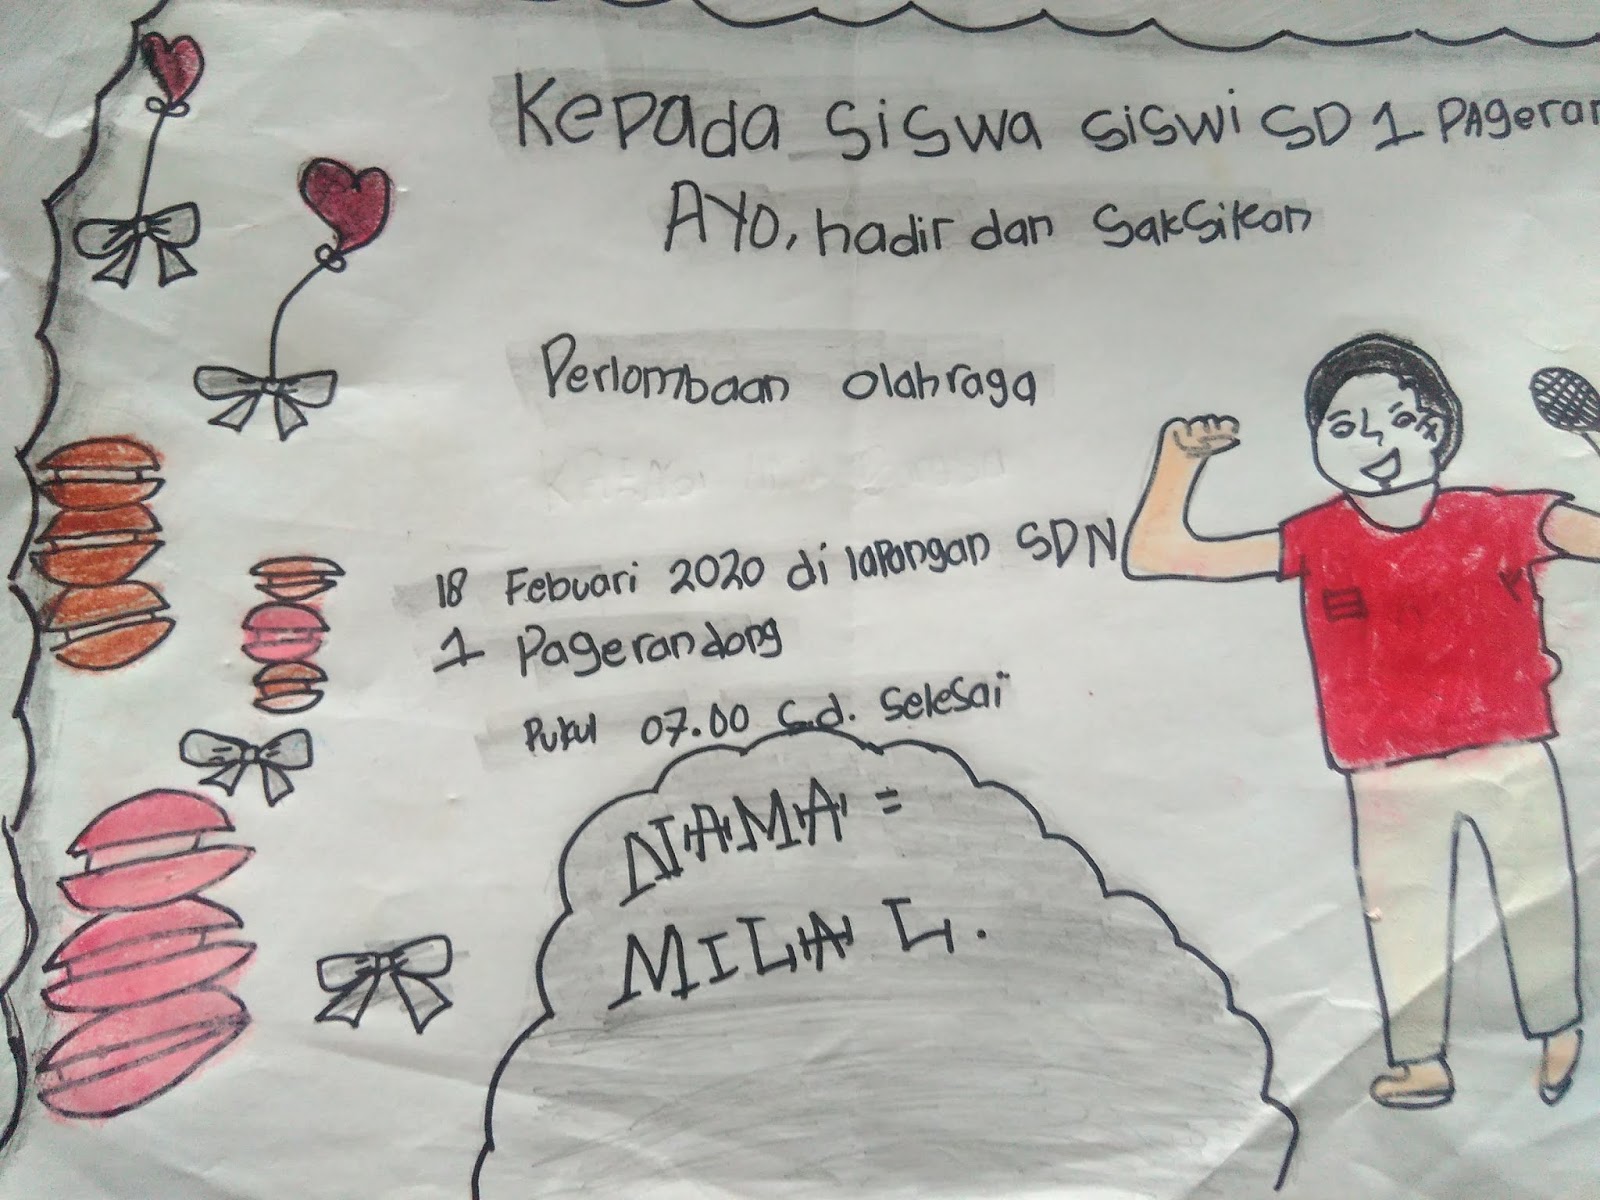 Kepada siswa siswi SD 1 Pageran
AYO, hadir dan Saksikan
Perlombaan olahraga
18 Febuari 2020 di lapangan SDN
1 Pagerandong
Pukul 07.00 s.d. Selesai
NAMA =
MILA L.